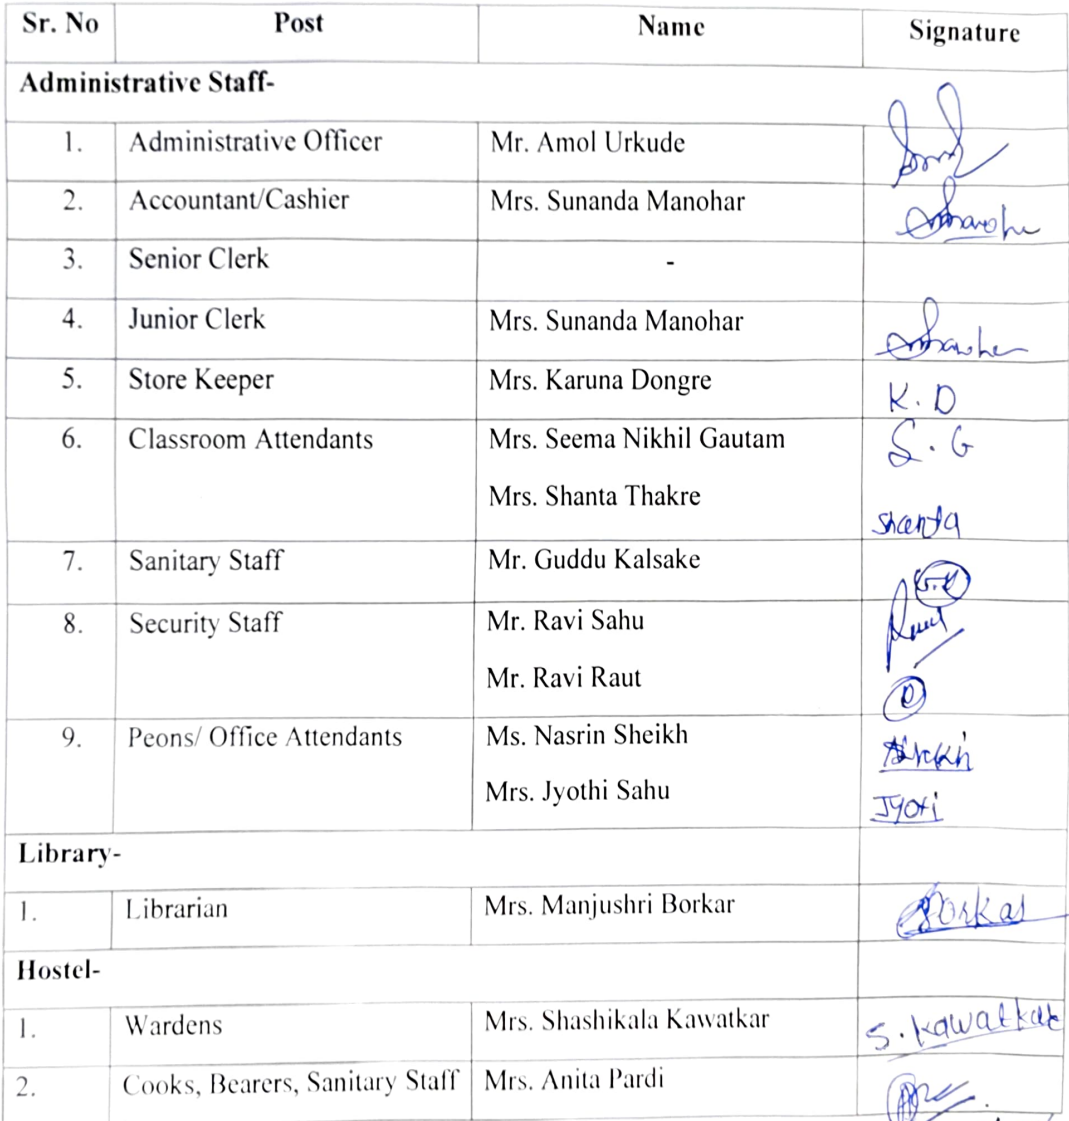 Sr. No Post Name Signature
Administrative Staff-
1. Administrative Officer Mr. Amol Urkude
2. Accountant/Cashier Mrs. Sunanda Manohar
3. Senior Clerk -
4. Junior Clerk Mrs. Sunanda Manohar
5. Store Keeper Mrs. Karuna Dongre K. D
6. Classroom Attendants Mrs. Seema Nikhil Gautam S. G
Mrs. Shanta Thakre Shanta
7. Sanitary Staff Mr. Guddu Kalsake
8. Security Staff Mr. Ravi Sahu
Mr. Ravi Raut
9. Peons/ Office Attendants Ms. Nasrin Sheikh
Mrs. Jyothi Sahu Jyoti
Library-
1. Librarian Mrs. Manjushri Borkar Borkar
Hostel-
1. Wardens Mrs. Shashikala Kawatkar S. Kawatkar
2. Cooks, Bearers, Sanitary Staff Mrs. Anita Pardi